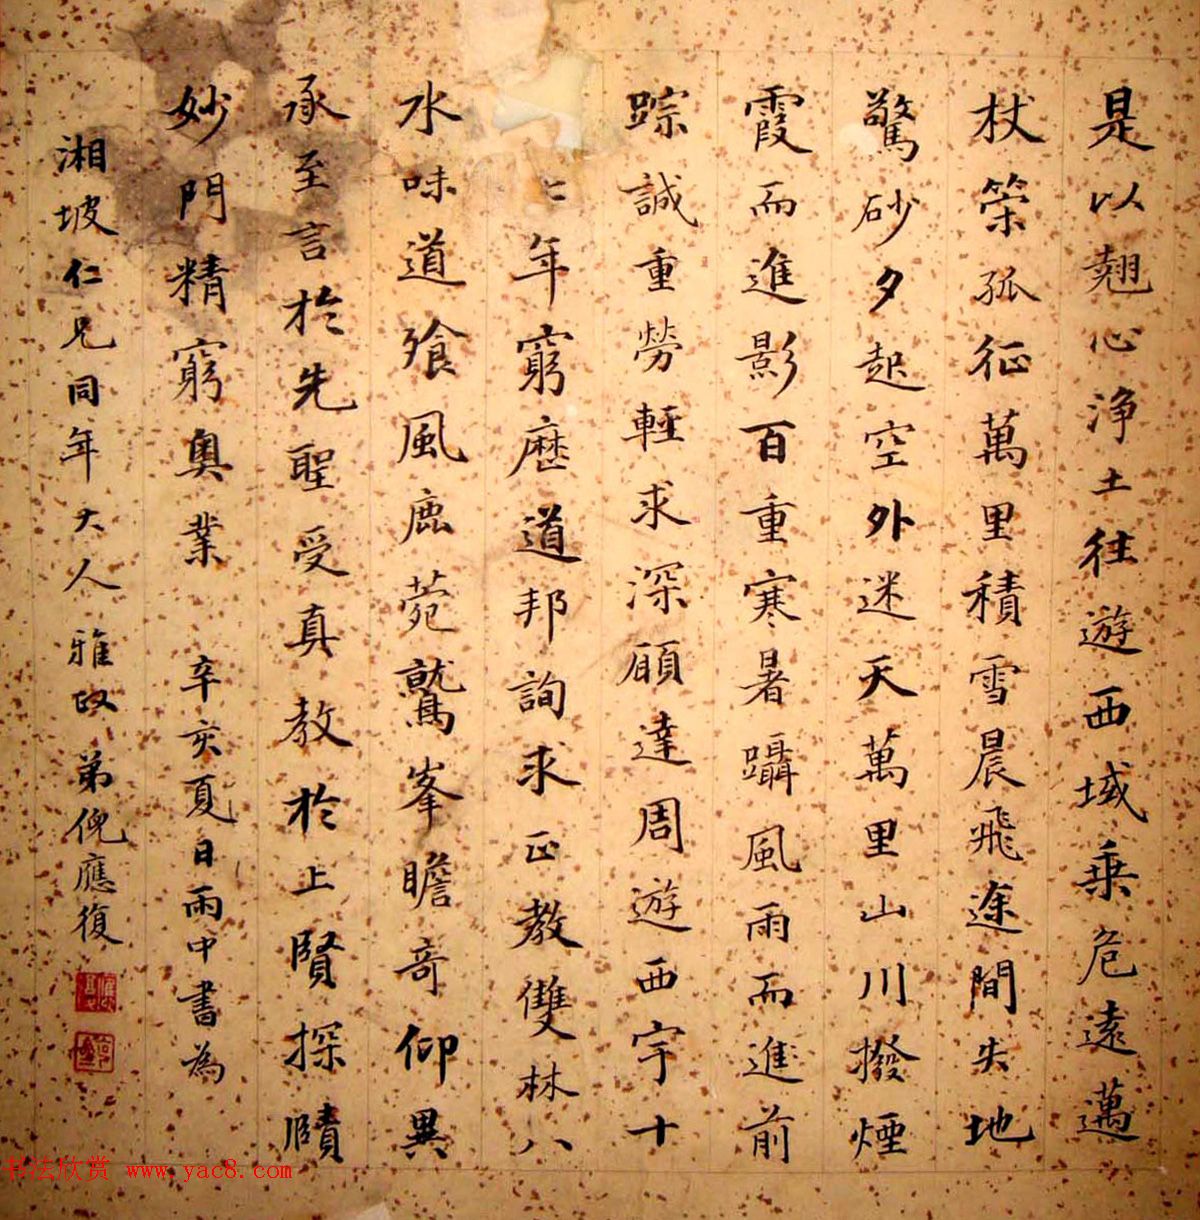 是以翹心淨土往遊西域乘危遠邁
杖策孤征萬里積雪晨飛途間失地
驚砂夕起空外迷天萬里山川撥煙
霞而進影百重寒暑躡風雨而進前
踪誠重勞輕求深願達周遊西宇十
七年窮歷道邦詢求正教雙林八
水味道飱風鹿菀鷲峯瞻奇仰異
承至言於先聖受真教於上賢探賾
妙門精窮奧業 辛亥夏日雨中書為
湘坡仁兄同年大人雅政 弟倪應復
书法欣赏 www.yac8.com